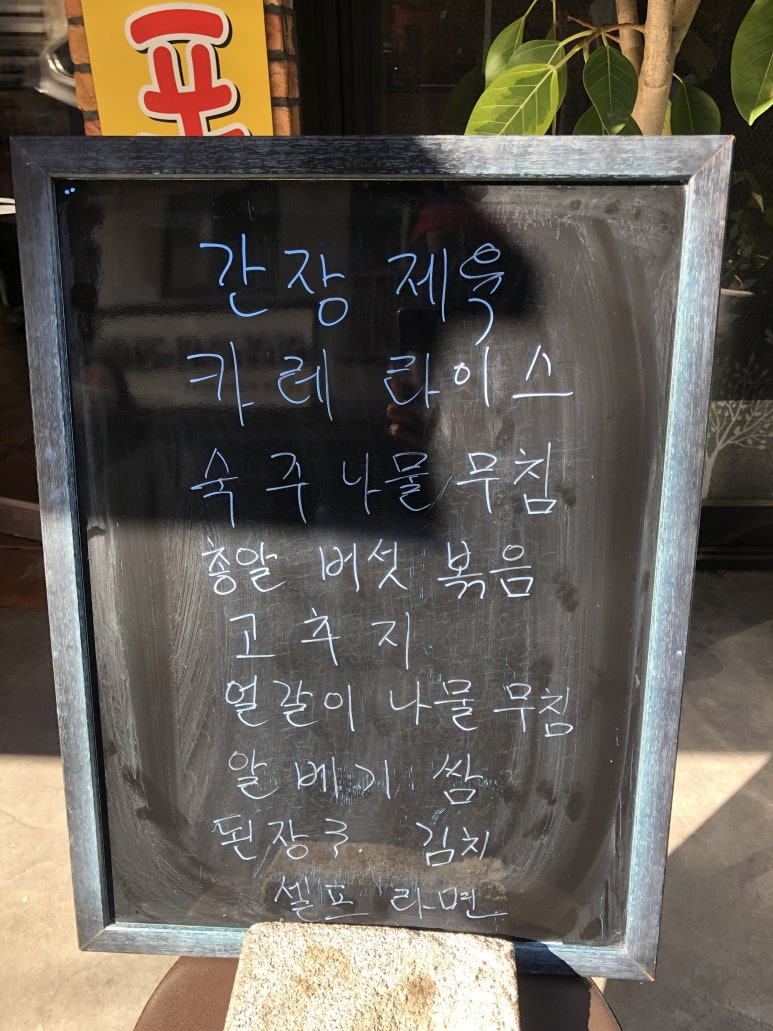 간장 제육
카레 라이스
숙주나물무침
총알 버섯 볶음
고추지
얼갈이 나물무침
알배기 쌈
된장국. 김치
셀프 라면